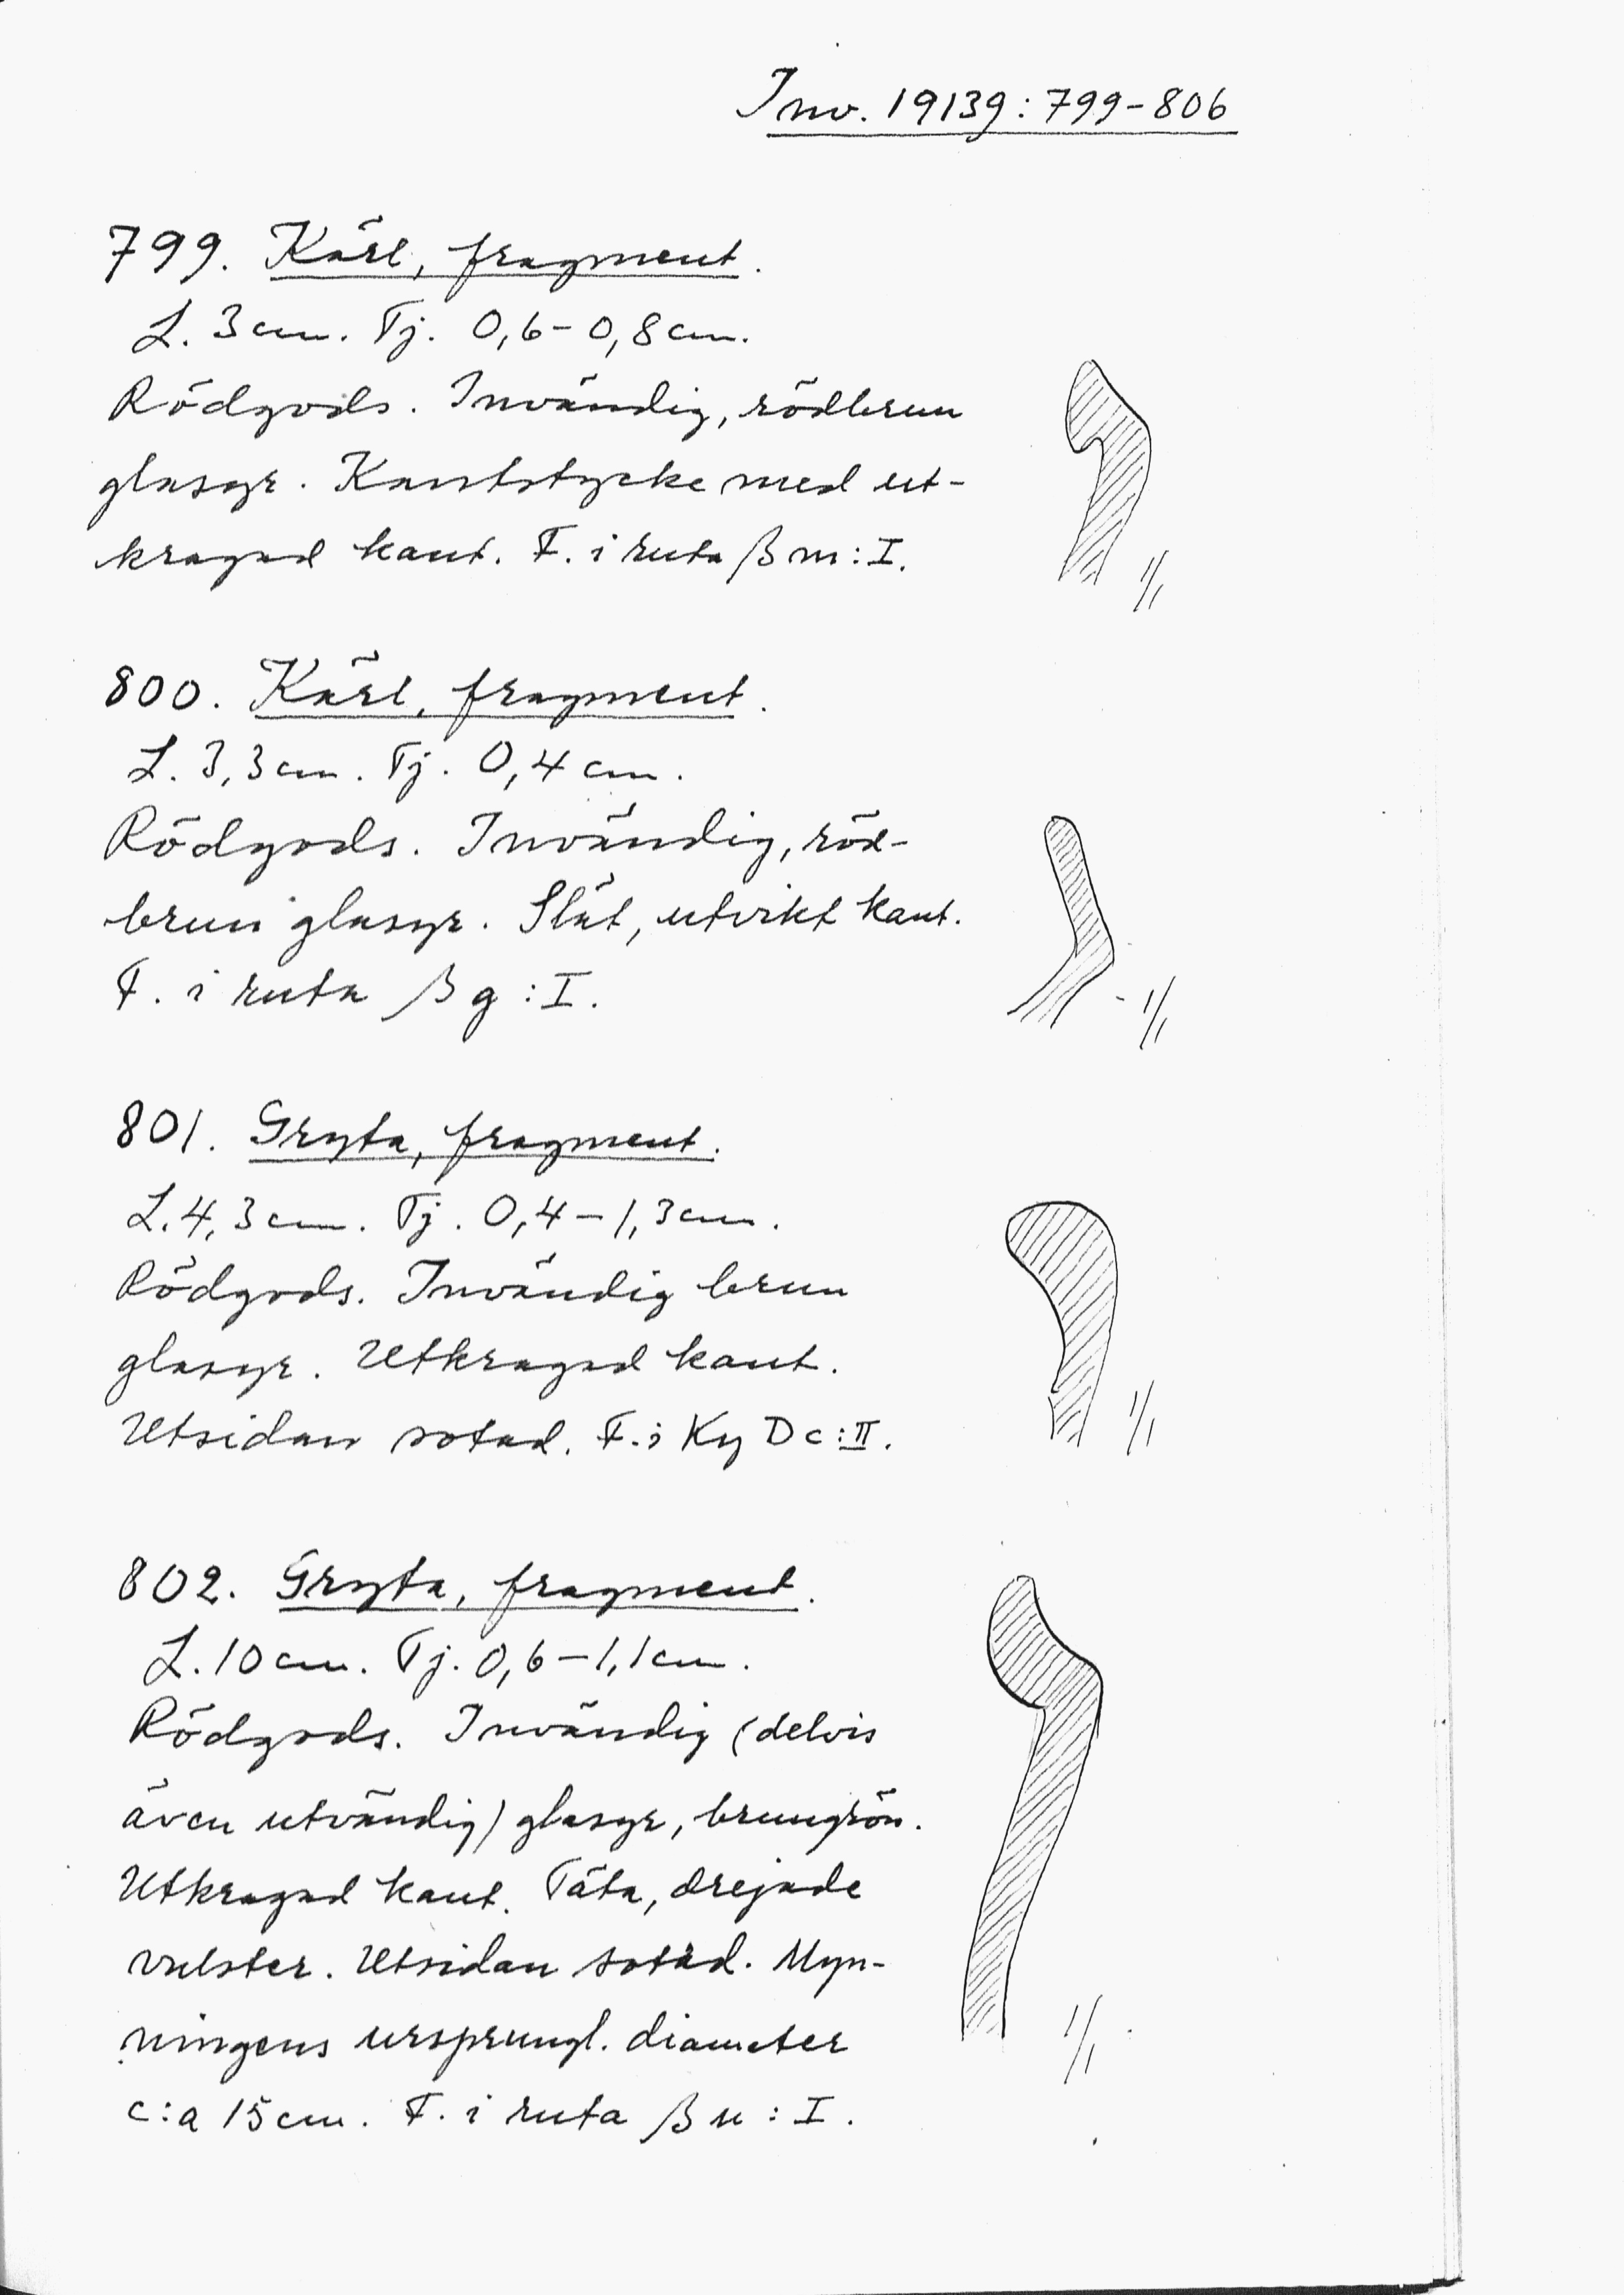 Inv. 19139:799-806
799. Kärl, fragment.
L. 3 cm. Tj. 0,6-0,8 cm.
Rödgods. Invändig, rödbrun
glasyr. Kantstycke med ut-
kragad kant. F. i ruta ßm:I.
1/1
800. Kärl, fragment.
L. 3,3 cm. Tj. 0,4 cm.
Rödgods. Invändig, röd-
brun glasyr. Slät, utvikt kant.
F. i ruta ßg:I.
1/1
801. Gryta, fragment.
L. 4,3 cm. Tj. 0,4-1,3 cm.
Rödgods. Invändig brun
glasyr. Utkragad kant.
Utsidan sotad. F. i Ky Dc:II.
1/1
802. Gryta, fragment.
L. 10 cm. Tj. 0,6-1,1 cm.
Rödgods. Invändig (delvis
även utvändig) glasyr, brungrön.
Utkragad kant. Täta, drejade
vulster. Utsidan sotad. Myn-
ningens ursprungl. diameter
c:a 15 cm. F. i ruta ßn:I.
1/1